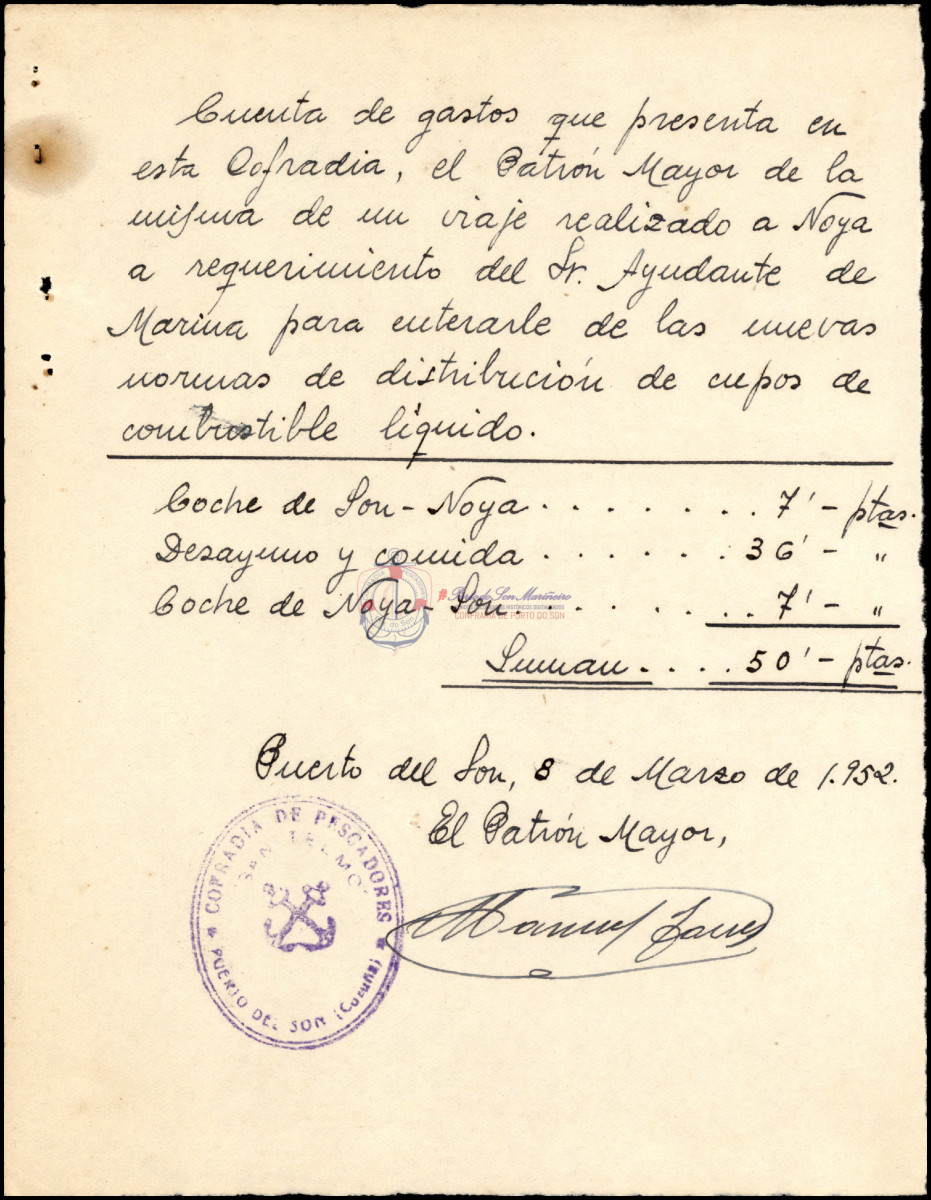 Cuenta de gastos que presenta en
esta Cofradia, el Patrón Mayor de la
misma de un viaje realizado a Noya
a requerimiento del Sr. Ayudante de
Marina para enterarle de las nuevas
normas de distribución de cupos de
combustible líquido.
Coche de Son-Noya . . . . . . . . 7'- ptas.
Desayuno y comida . . . . . . 36'- "
Coche de Noya-Son. . . . . . . . 7'- "
Suman . . . . 50'- ptas.
#Porto do Son Mariñeiro
CONFRARÍA DE PORTO DO SON
Puerto del Son, 8 de Marzo de 1.952.
El Patrón Mayor,
COFRADIA DE PESCADORES
SAN TELMO
PUERTO DEL SON (Coruña)
Manuel